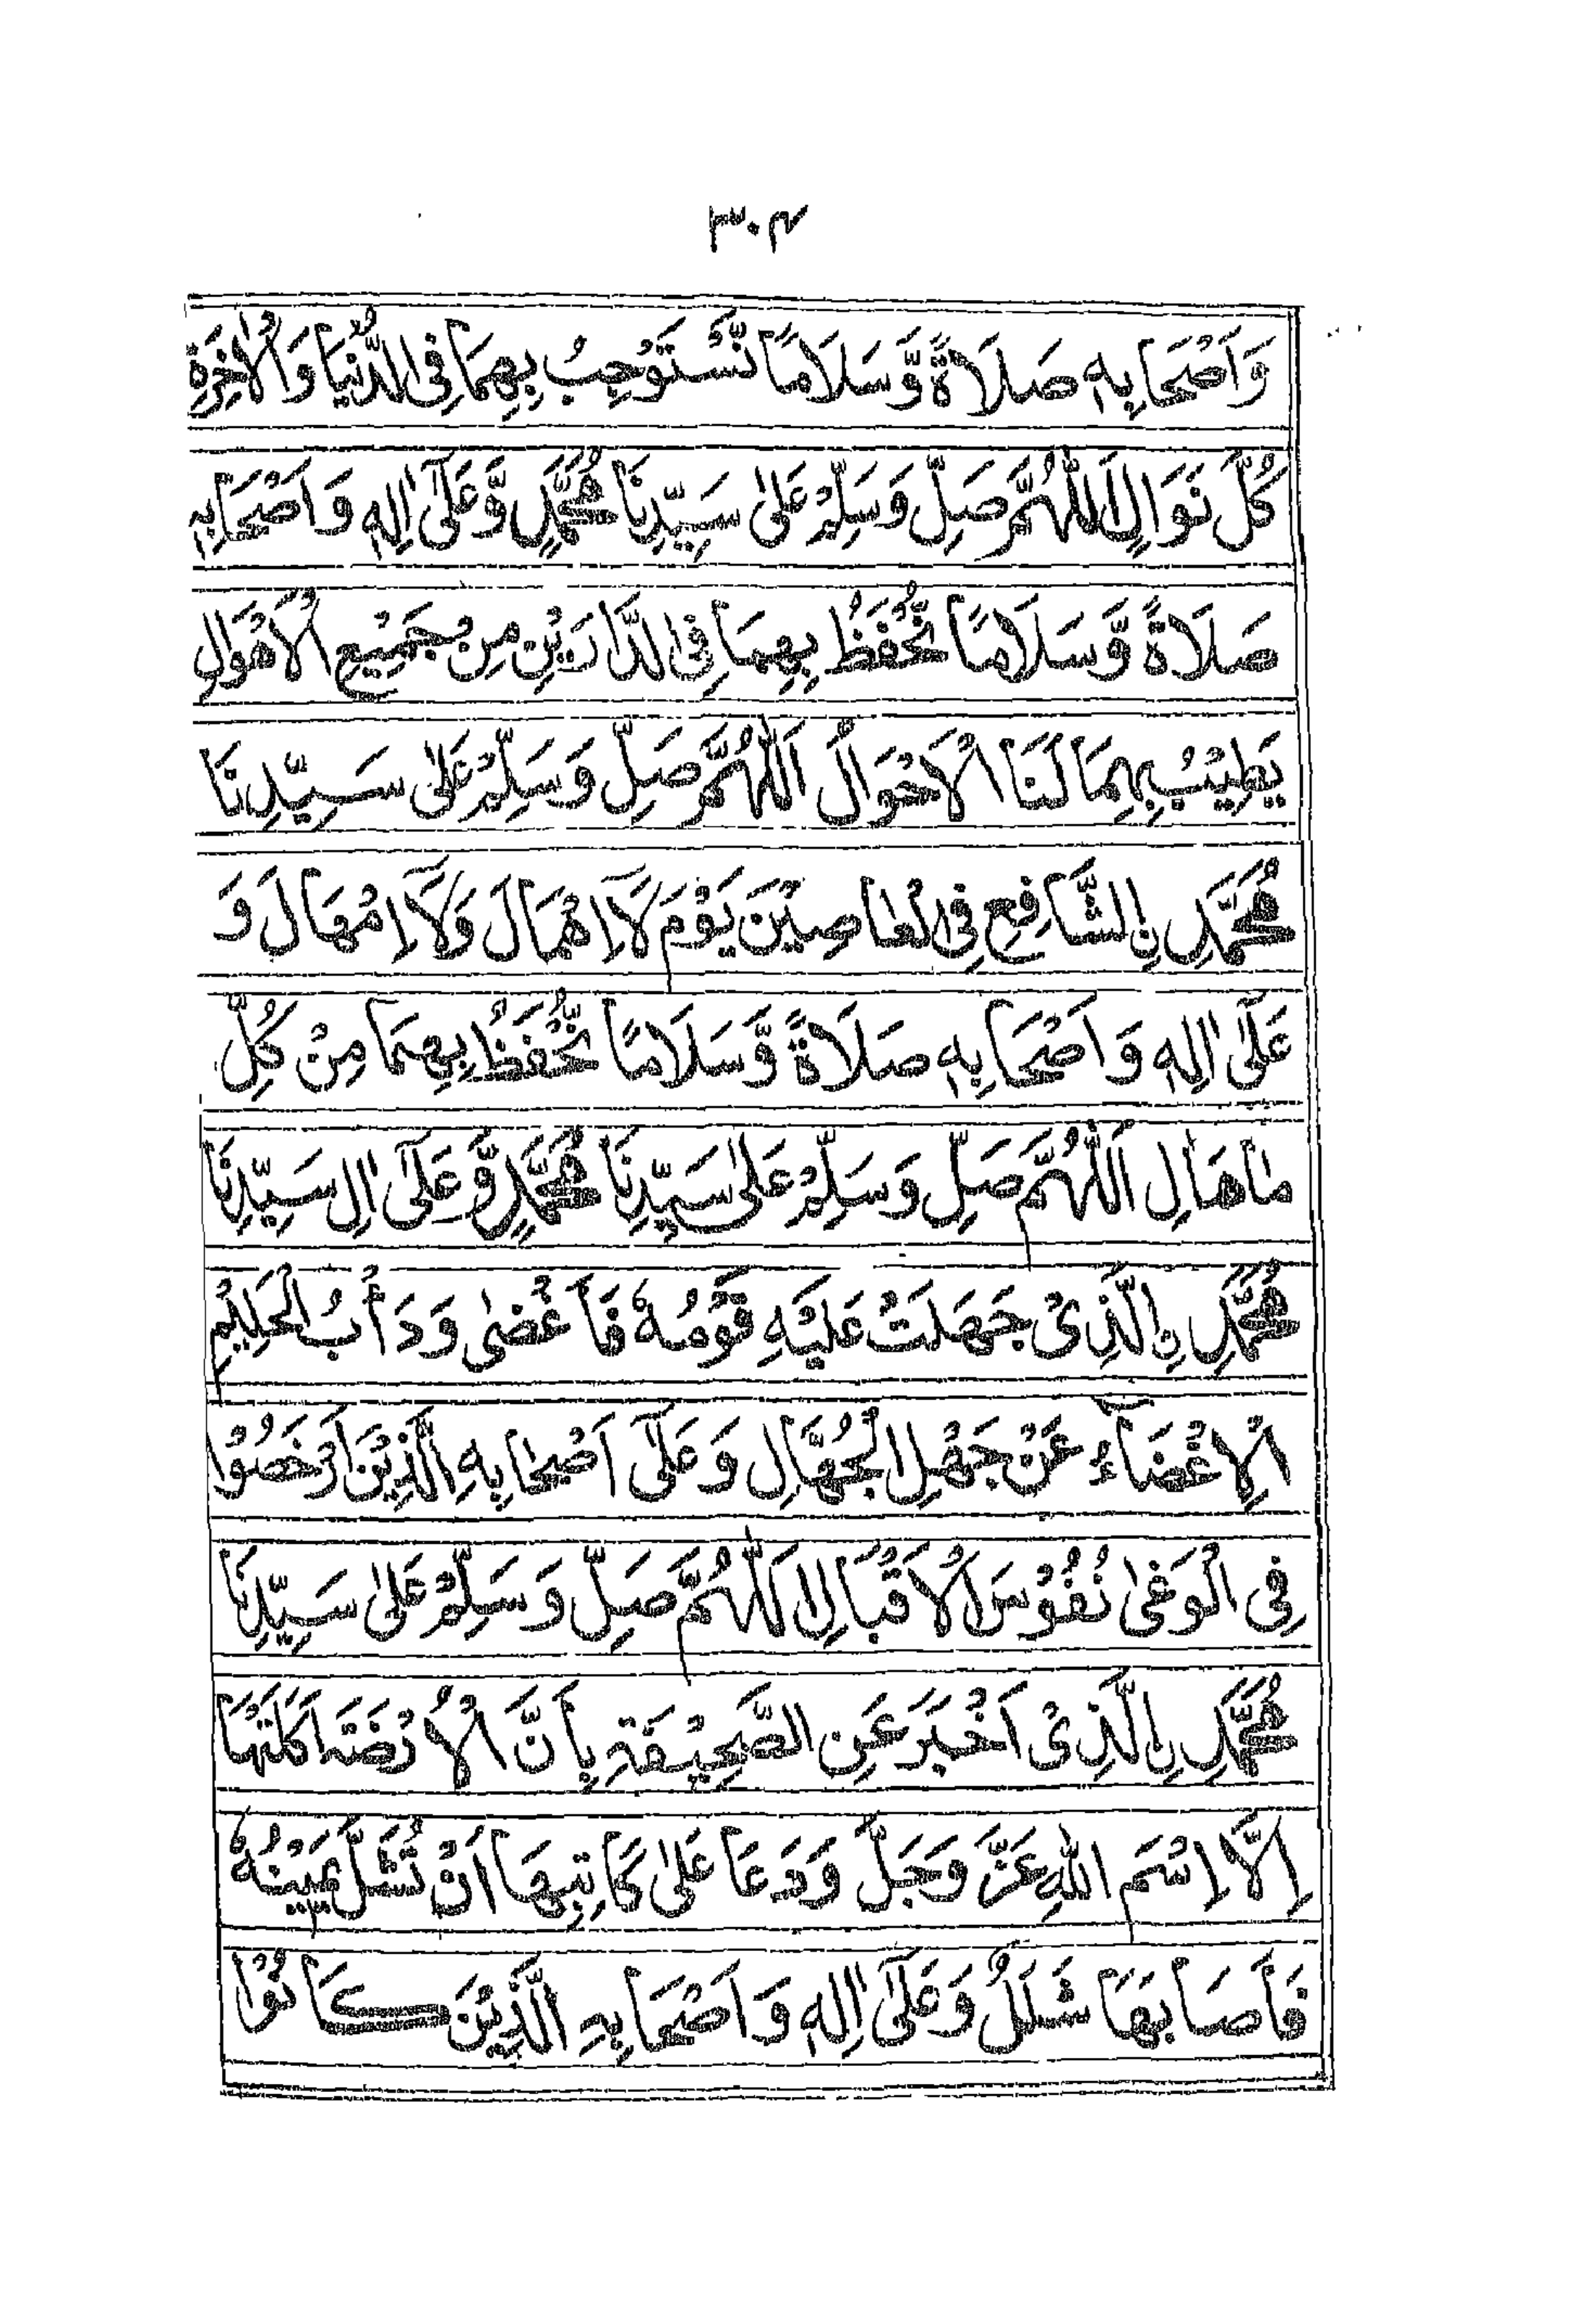 ٣٠٢
وَاَصْحَابِهٖ صَلَاةً وَّسَلَامًا نَّسْتَوْجِبُ بِهِمَا فِى الدُّنْيَا وَالْاٰخِرَةِ
كُلَّ نَوَالٍ اَللّٰهُمَّ صَلِّ وَسَلِّمْ عَلٰى سَيِّدِنَا مُحَمَّدٍ وَّعَلٰٓى اٰلِهٖ وَاَصْحَابِهٖ
صَلَاةً وَّسَلَامًا نُّحْفَظُ بِهِمَا فِى الدَّارَيْنِ مِنْ جَمِيْعِ الْاَهْوَالِ
يَطِيْبُ بِهِمَا لَنَا الْاَحْوَالُ اَللّٰهُمَّ صَلِّ وَسَلِّمْ عَلٰى سَيِّدِنَا
مُحَمَّدِ نِ الشَّافِعِ فِى الْعَاصِيْنَ يَوْمَ لَآ اِهْمَالَ وَلَآ اِمْهَالَ وَ
عَلٰٓى اٰلِهٖ وَاَصْحَابِهٖ صَلَاةً وَّسَلَامًا نُّحْفَظُ بِهِمَا مِنْ كُلِّ
مَاهَالِ اَللّٰهُمَّ صَلِّ وَسَلِّمْ عَلٰى سَيِّدِنَا مُحَمَّدٍ وَّعَلٰٓى اٰلِ سَيِّدِنَا
مُحَمَّدِ نِ الَّذِىْ جَهَلَتْ عَلَيْهِ قَوْمُهٗ فَاَغْضٰى وَدَأْبُ الْحَلِيْمِ
الْاِغْضَآءُ عَنْ جَهْلِ الْجُهَّالِ وَعَلٰٓى اَصْحَابِهِ الَّذِيْنَ اَرْخَصُوْا
فِى الْوَغٰى نُفُوْسَ الْاَقْبَالِ اَللّٰهُمَّ صَلِّ وَسَلِّمْ عَلٰى سَيِّدِنَا
مُحَمَّدِ نِ الَّذِىْ اَخْبَرَ عَنِ الصَّحِيْفَةِ بِاَنَّ الْاَرْضَةَ اَكَلَتْهَا
اِلَّا اِسْمَ اللّٰهِ عَزَّ وَجَلَّ وَدَعَا عَلٰى كَاتِبِهَا اَنْ تُشَلَّ يَمِيْنُهٗ
فَاَصَابَهَا شَلَلٌ وَعَلٰٓى اٰلِهٖ وَاَصْحَابِهِ الَّذِيْنَ كَانُوْا